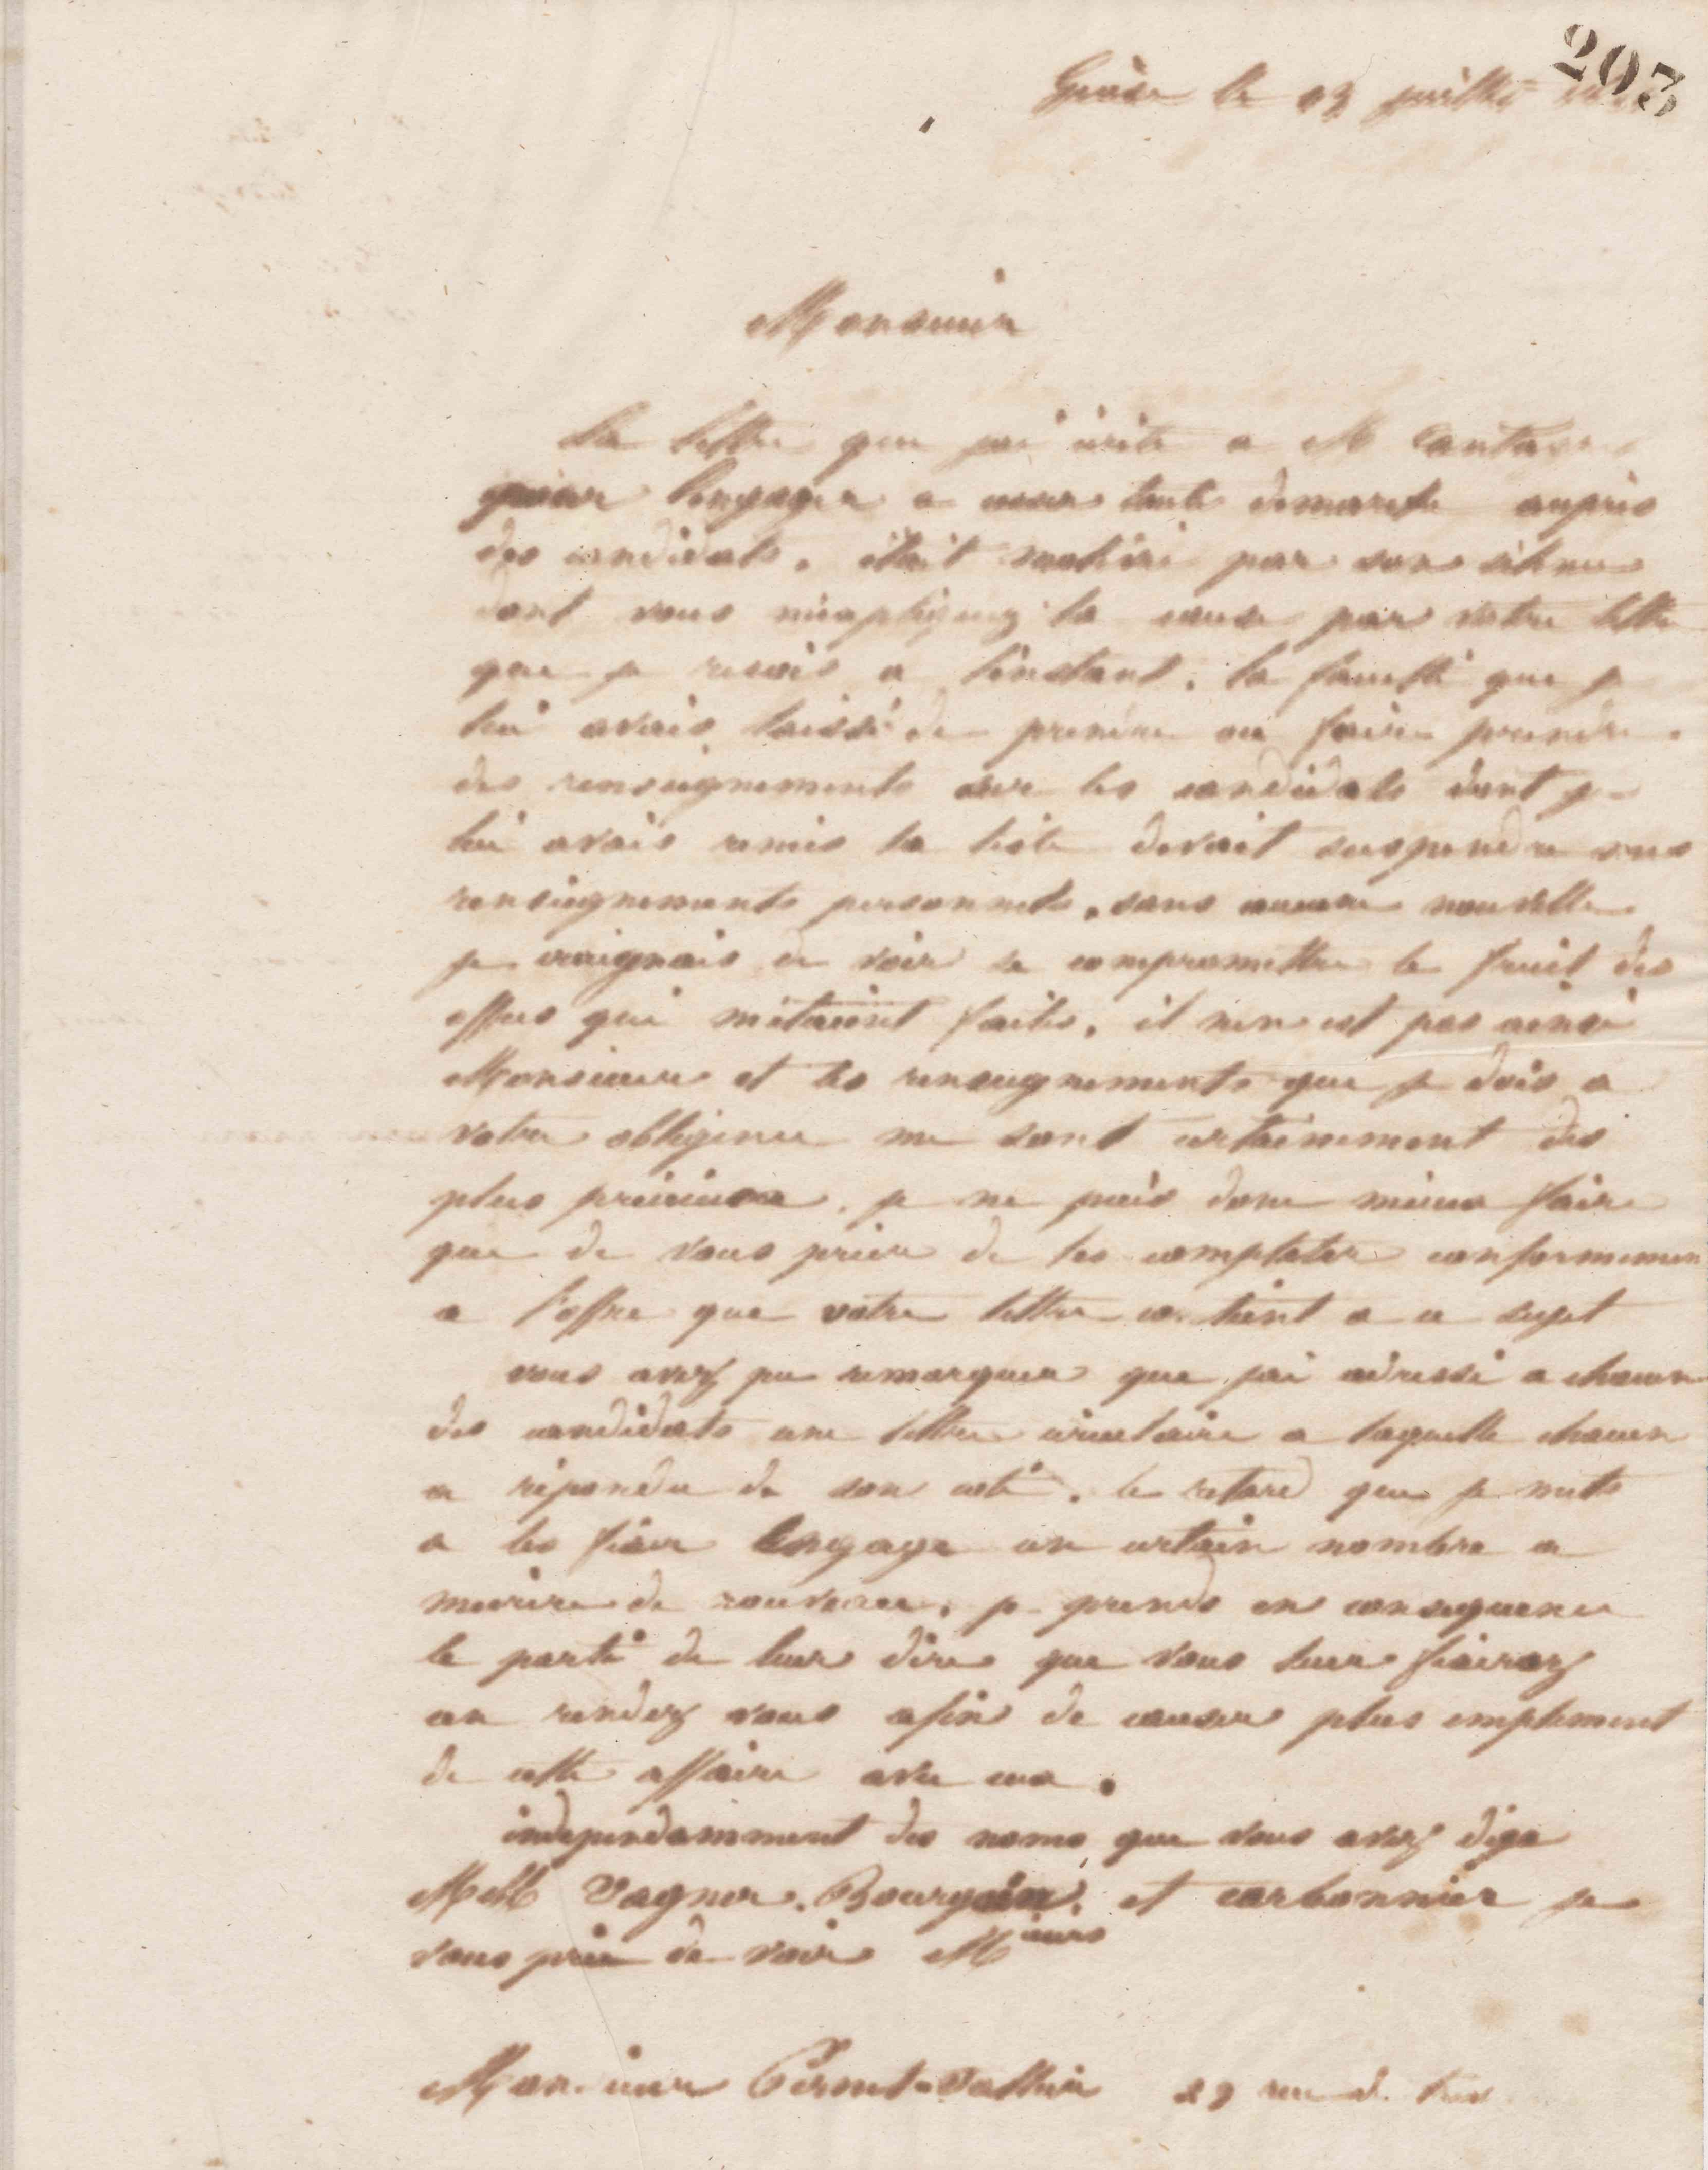 203
Guise le 13 juillet
Monsieur
La lettre que jai écrite a M Cantas
pour l'engager a cesser toute demarche auprès
des candidats, était motivé par son silence
dont vous m'expliquez la cause par votre lettre
que je reçois a l'instant. la faculté que je
lui avais laissé de prendre ou faire prendre
des renseignements sur les candidats dont je
lui avais remis la liste devait suspendre mes
renseignements personnels, sans aucune nouvelle
je craignais de voir se compromettre le fruit des
offres qui m'étaient faites, il n'en est pas ainsi
Monsieur et les renseignements que je dois a
votre obligence me sont certainement des
plus précieux, je ne puis donc mieux faire
que de vous prier de les completer conformemen
a l'offre que votre lettre contient a ce sujet
vous avez pu remarquer que jai adressé a chacun
des candidats une lettre circulaire a laquelle chacun
a répondu de son coté, le retard que je mets
a les fixer engage un certain nombre a
m'écrire de nouveau, je prends en consequence
le parti de leur dire que vous leur fixerez
un rendez vous afin de causer plus emplement
de cette affaire avec eux.
independamment des noms que vous avez deja
MM Vagner, Bourgoin, et carbonnier je
vous prie de voir Mieurs
Monsieur 29 rue de